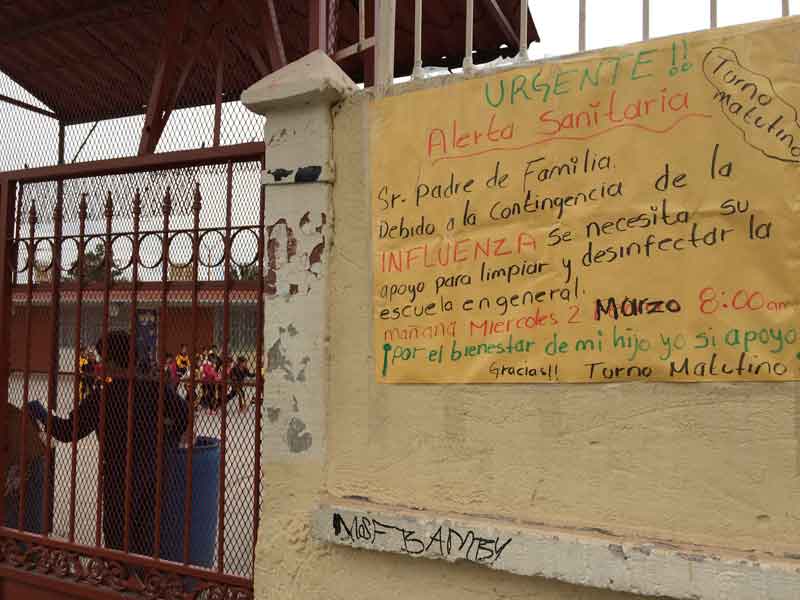 URGENTE!!
Alerta Sanitaria
Turno
matutino
Sr. padre de Familia.
Debido a la Contingencia de la
INFLUENZA se necesita su
apoyo para limpiar y desinfectar la
escuela en general.
mañana Miercoles 2 Marzo 8:00am
¡por el bienestar de mi hijo yo si apoyo!
Gracias!! Turno Matutino
BAMBY